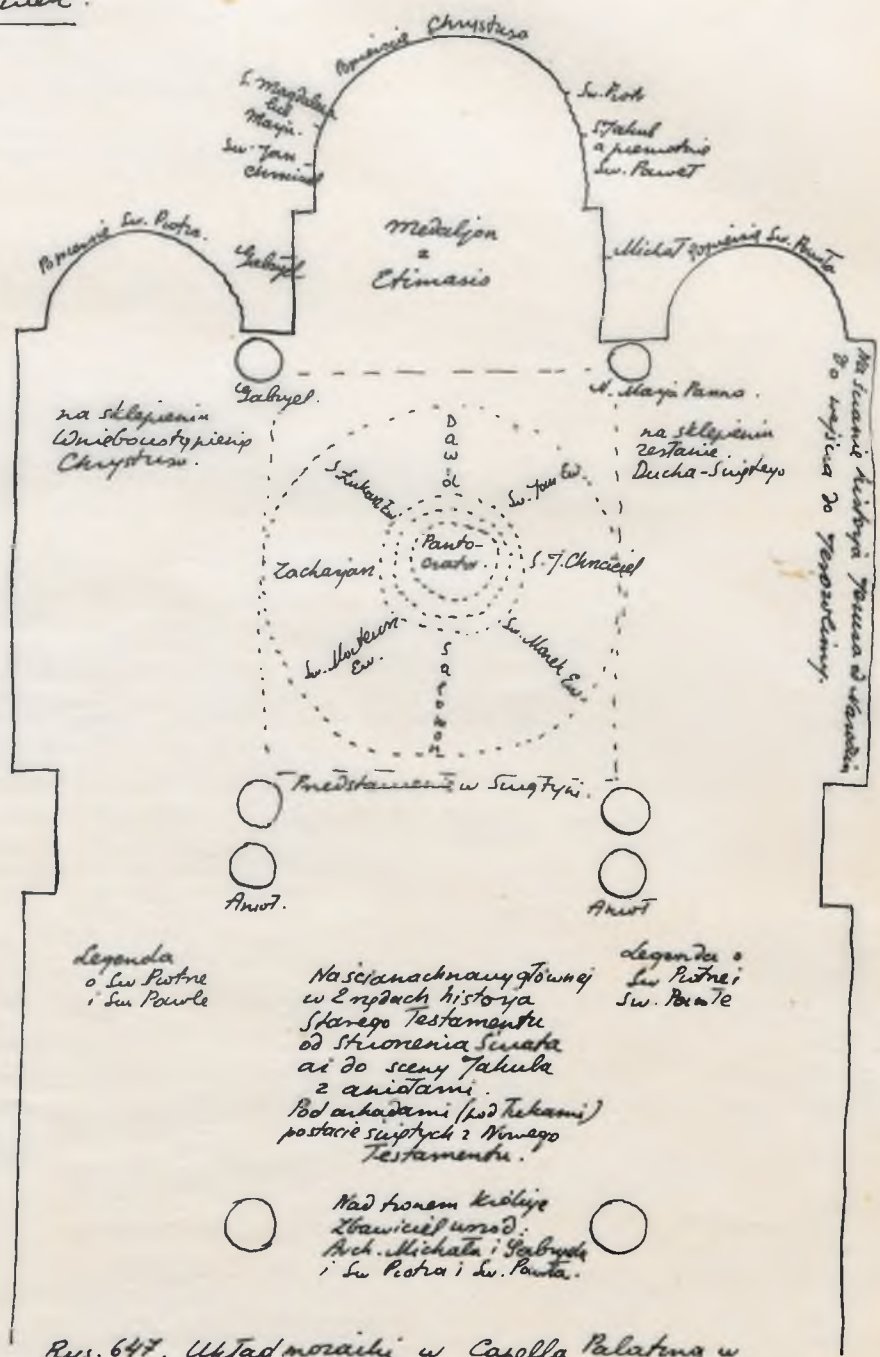 Popiersie Chrystusa
S. Magdalena
lub
Marja.
Św. Jan
Chrciciel
Św. Piotr
S. Jakub
a pierwotnie
Św. Paweł
Popiersie Św. Piotra.
Gabryel
Medaljon
z
Etimasis
Michał
popiersie Św. Pawła
Gabryel.
N. Marja Panna.
na sklepieniu
Wniebowstąpienie
Chrystusa.
na sklepieniu
zesłanie
Ducha-Świętego
Na ścianie historja Jezusa od Narodzin
do wejścia do Jerozolimy.
Dawid
S. Łukasz Ew.
Św. Jan Ew.
Zacharjasz
Panto-
crator.
S. J. Chrzciciel
Św. Mateusz
Ew.
Salomon
Św. Marek Ew.
Przedstawienie w Świątyni.
Anioł.
Anioł
Legenda
o Św Piotrze
i Św Pawle
Legenda o
Św Piotrze i
Św. Pawle
Na ścianach nawy głównej
w 2 rzędach historja
Starego Testamentu
od Stworzenia Świata
aż do sceny Jakuba
z aniołami.
Pod arkadami (pod łukami)
postacie świętych z Nowego
Testamentu.
Nad tronem króluje
Zbawiciel wsród:
Arch. Michała i Gabryela
i Św Piotra i Św. Pawła.
Rys. 647. Układ mozaiki w Capella Palatina w